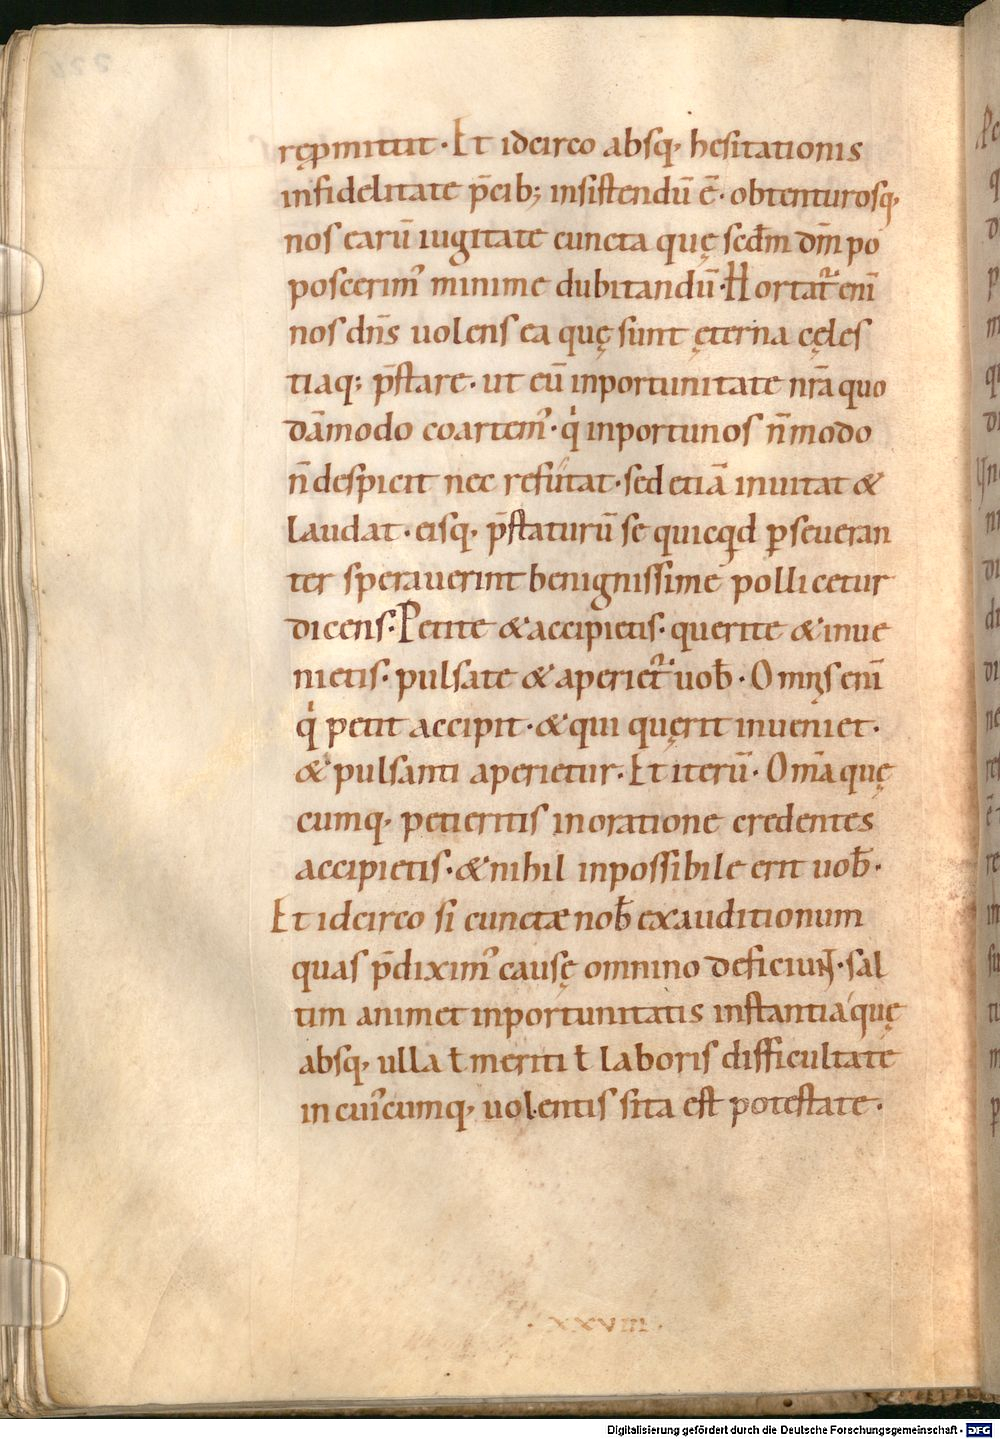 rępmittit · Et idcirco absq, hesitationis
infidelitate p̄cib; insistendū ē · obtenturosq,
nos earū iugitate cuncta quę scd̄m dm̄ po
poscerim᾽ minime dubitandū · Hortat᷑ eni̅
nos dn̄s uolens ea quę sunt ęterna cęles
tiaq; p̄stare · ut eū inportunitate nr̄a quo
dāmodo coartem᾽ · qͥ inportunos n̄modo
n̄ despicit nec refutat · sed etiā inuitat &
laudat · eisq, p̄staturū se quicqͥd ꝑseueran
ter sperauerint benignissime pollicetur
dicens · Petite & accipietis · querite & inue
nietis · pulsate & aperiet᷑ uob̄ · Omnįs eni̅
qͥ petit accipit · & qui quęrit inueniet ·
& pulsanti aperietur · Et iterū · Om̄a quę
cumq, petieritis in oratione credentes
accipietis · & nihil inpossibile erit uob̄ ·
Et idcirco si cunctæ nob̄ exauditionum
quas p̄dixim᾽ causę omnino deficiunt · sal
tim animet inportunitatis instantia quę
absq, ulla ł meriti ł laboris difficultate
in cui᾽cumq, uolentis sita est potestate ·
· XXVIII ·
Digitalisierung gefördert durch die Deutsche Forschungsgemeinschaft - DFG